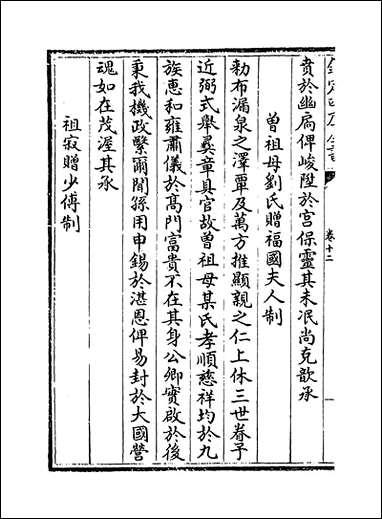 賁於幽扄俾峻陞於宫保靈其未冺尚克歆承
曾祖母劉氏贈福國夫人制
勅布漏泉之澤覃及萬方推顯親之仁上休三世眷予
近弼式舉彛章具官故曾祖母某氏孝順慈祥均於九
族惠和雍肅儀於髙門富貴不在其身公卿實啟於後
秉我機政繄爾聞孫用申錫於湛恩俾易封於大國營
魂如在茂渥其承
祖寂贈少傅制
卷十二